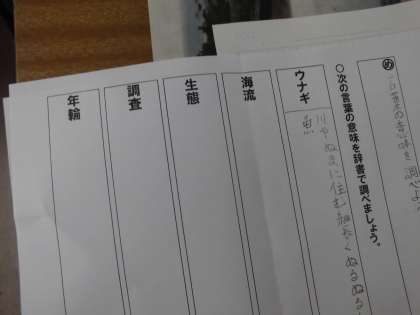 め 言葉の意味を調べよ
○次の言葉の意味を辞書で調べましょう。
ウナギ
川やぬまに住む細長くぬるぬる
魚
海流
生態
調査
年輪